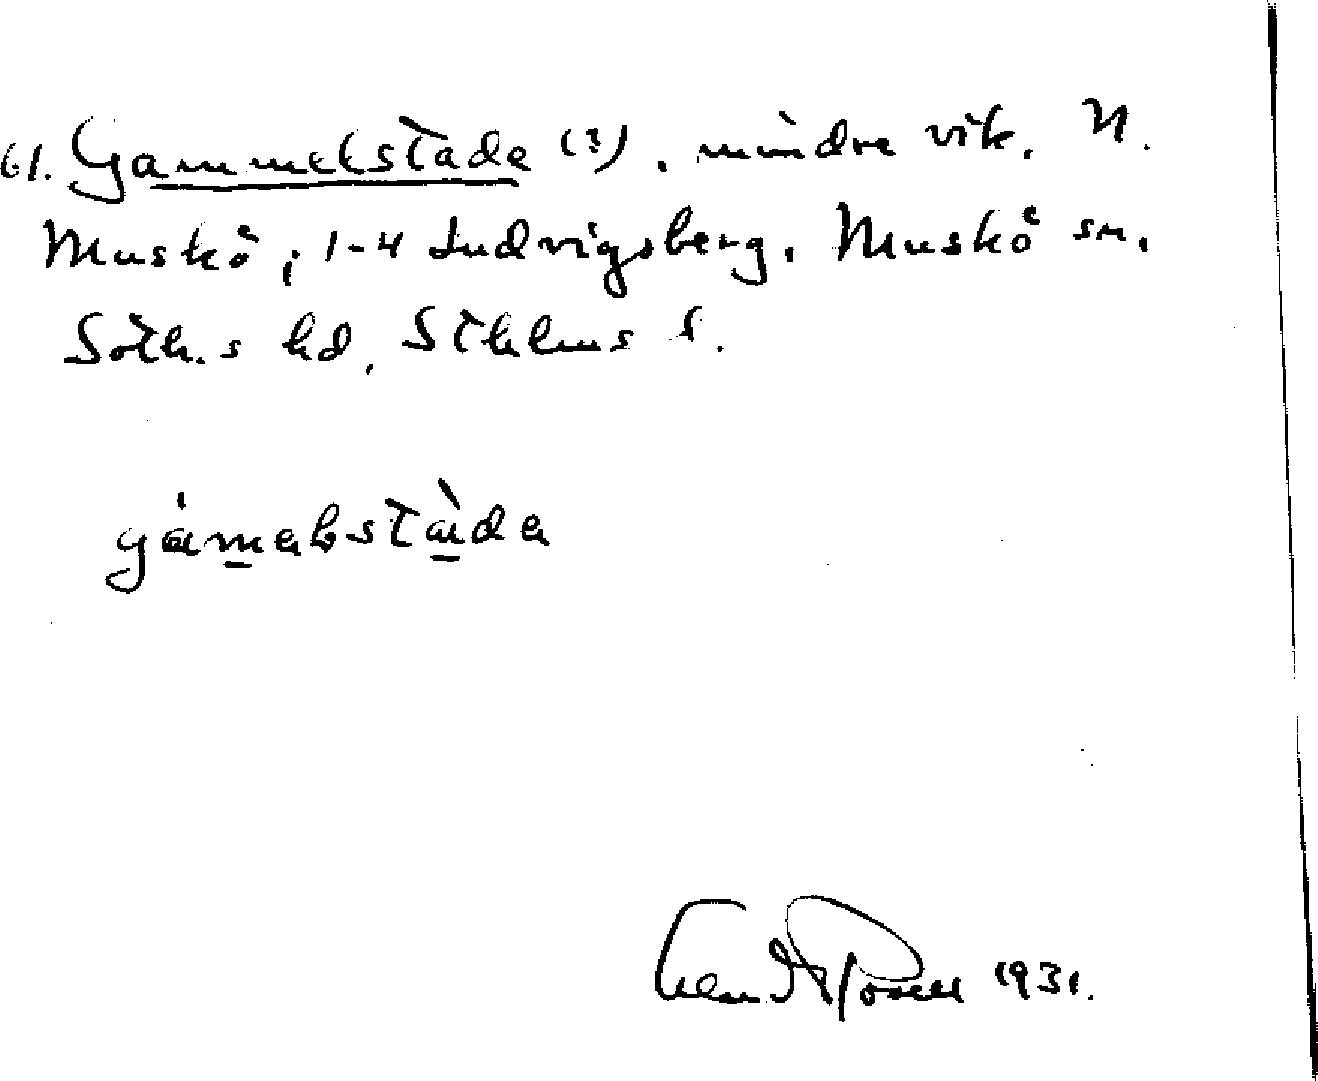 61. Gammelstade (?), mindre vik, N.
Muskö, 1-4 Ludvigsberg, Muskö sn.
Soth.s hd, Sthlms l.
gámalstàda
1931.